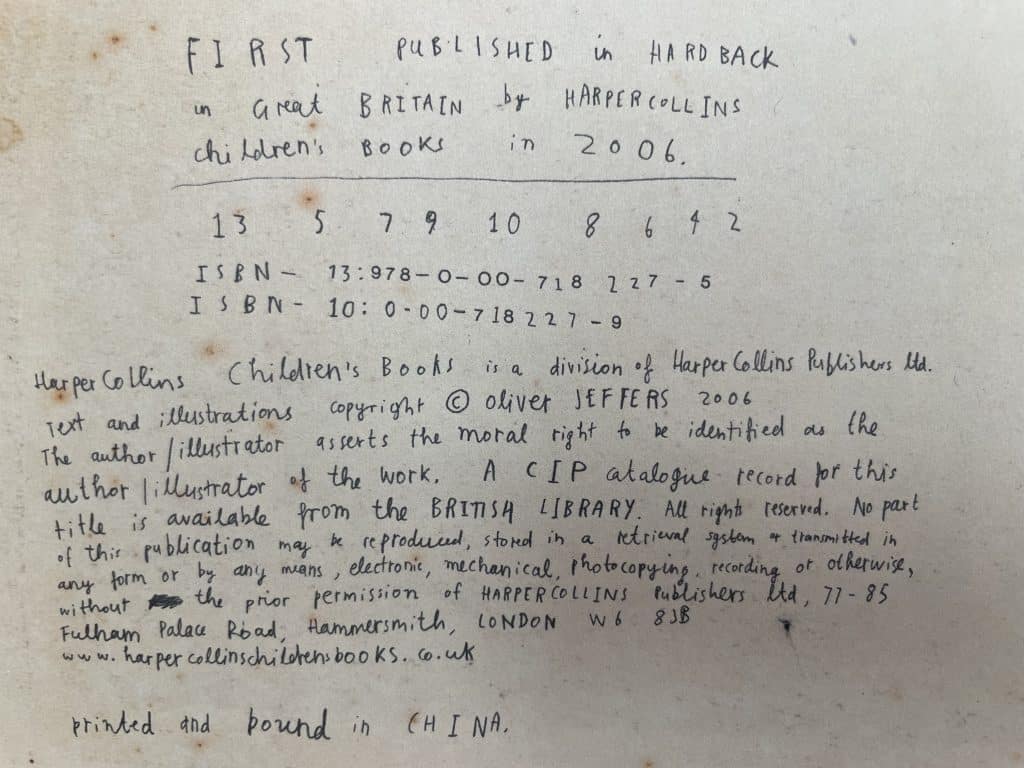 FIRST PUBLISHED in HARDBACK
in Great BRITAIN by HARPERCOLLINS
children's BOOKS in 2006.
13 5 7 9 10 8 6 4 2
ISBN - 13:978-0-00-718 227 - 5
ISBN - 10: 0-00-718227-9
HarperCollins Children's Books is a division of HarperCollins Publishers ltd.
Text and illustrations copyright © oliver JEFFERS 2006
The author/illustrator asserts the moral right to be identified as the
author/illustrator of the work. A CIP catalogue record for this
title is available from the BRITISH LIBRARY. All rights reserved. No part
of this publication may be reproduced, stored in a retrieval system or transmitted in
any form or by any means, electronic, mechanical, photocopying, recording or otherwise,
without the prior permission of HARPERCOLLINS Publishers ltd, 77-85
Fulham Palace Road, Hammersmith, LONDON W6 8JB
www.harpercollinschildrensbooks.co.uk
printed and bound in CHINA.